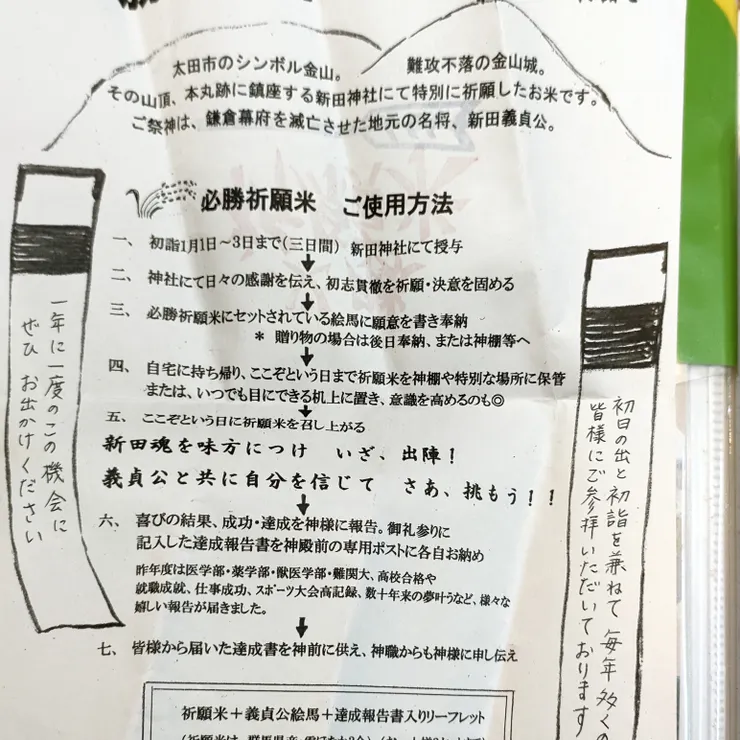 太田市のシンボル金山。　難攻不落の金山城。
その山頂、本丸跡に鎮座する新田神社にて特別に祈願したお米です。
ご祭神は、鎌倉幕府を滅亡させた地元の名将、新田義貞公。
必勝祈願米　ご使用方法
一、　初詣1月1日～3日まで(三日間)　新田神社にて授与
二、　神社にて日々の感謝を伝え、初志貫徹を祈願・決意を固める
三、　必勝祈願米にセットされている絵馬に願意を書き奉納
＊　贈り物の場合は後日奉納、または神棚等へ
四、　自宅に持ち帰り、ここぞという日まで祈願米を神棚や特別な場所に保管
または、いつでも目にできる机上に置き、意識を高めるのも◎
五、　ここぞという日に祈願米を召し上がる
新田魂を味方につけ　いざ、出陣！
義貞公と共に自分を信じて　さあ、挑もう！！
六、　喜びの結果、成功・達成を神様に報告。御礼参りに
記入した達成報告書を神殿前の専用ポストに各自お納め
昨年度は医学部・薬学部・獣医学部・難関大、高校合格や
就職成就、仕事成功、スポーツ大会高記録、数十年来の夢叶うなど、様々な
嬉しい報告が届きました。
七、　皆様から届いた達成書を神前に供え、神職からも神様に申し伝え
祈願米＋義貞公絵馬＋達成報告書入りリーフレット
初日の出と初詣を兼ねて毎年多くの
皆様にご参拝いただいております
一年に一度のこの機会に
ぜひ　お出かけください